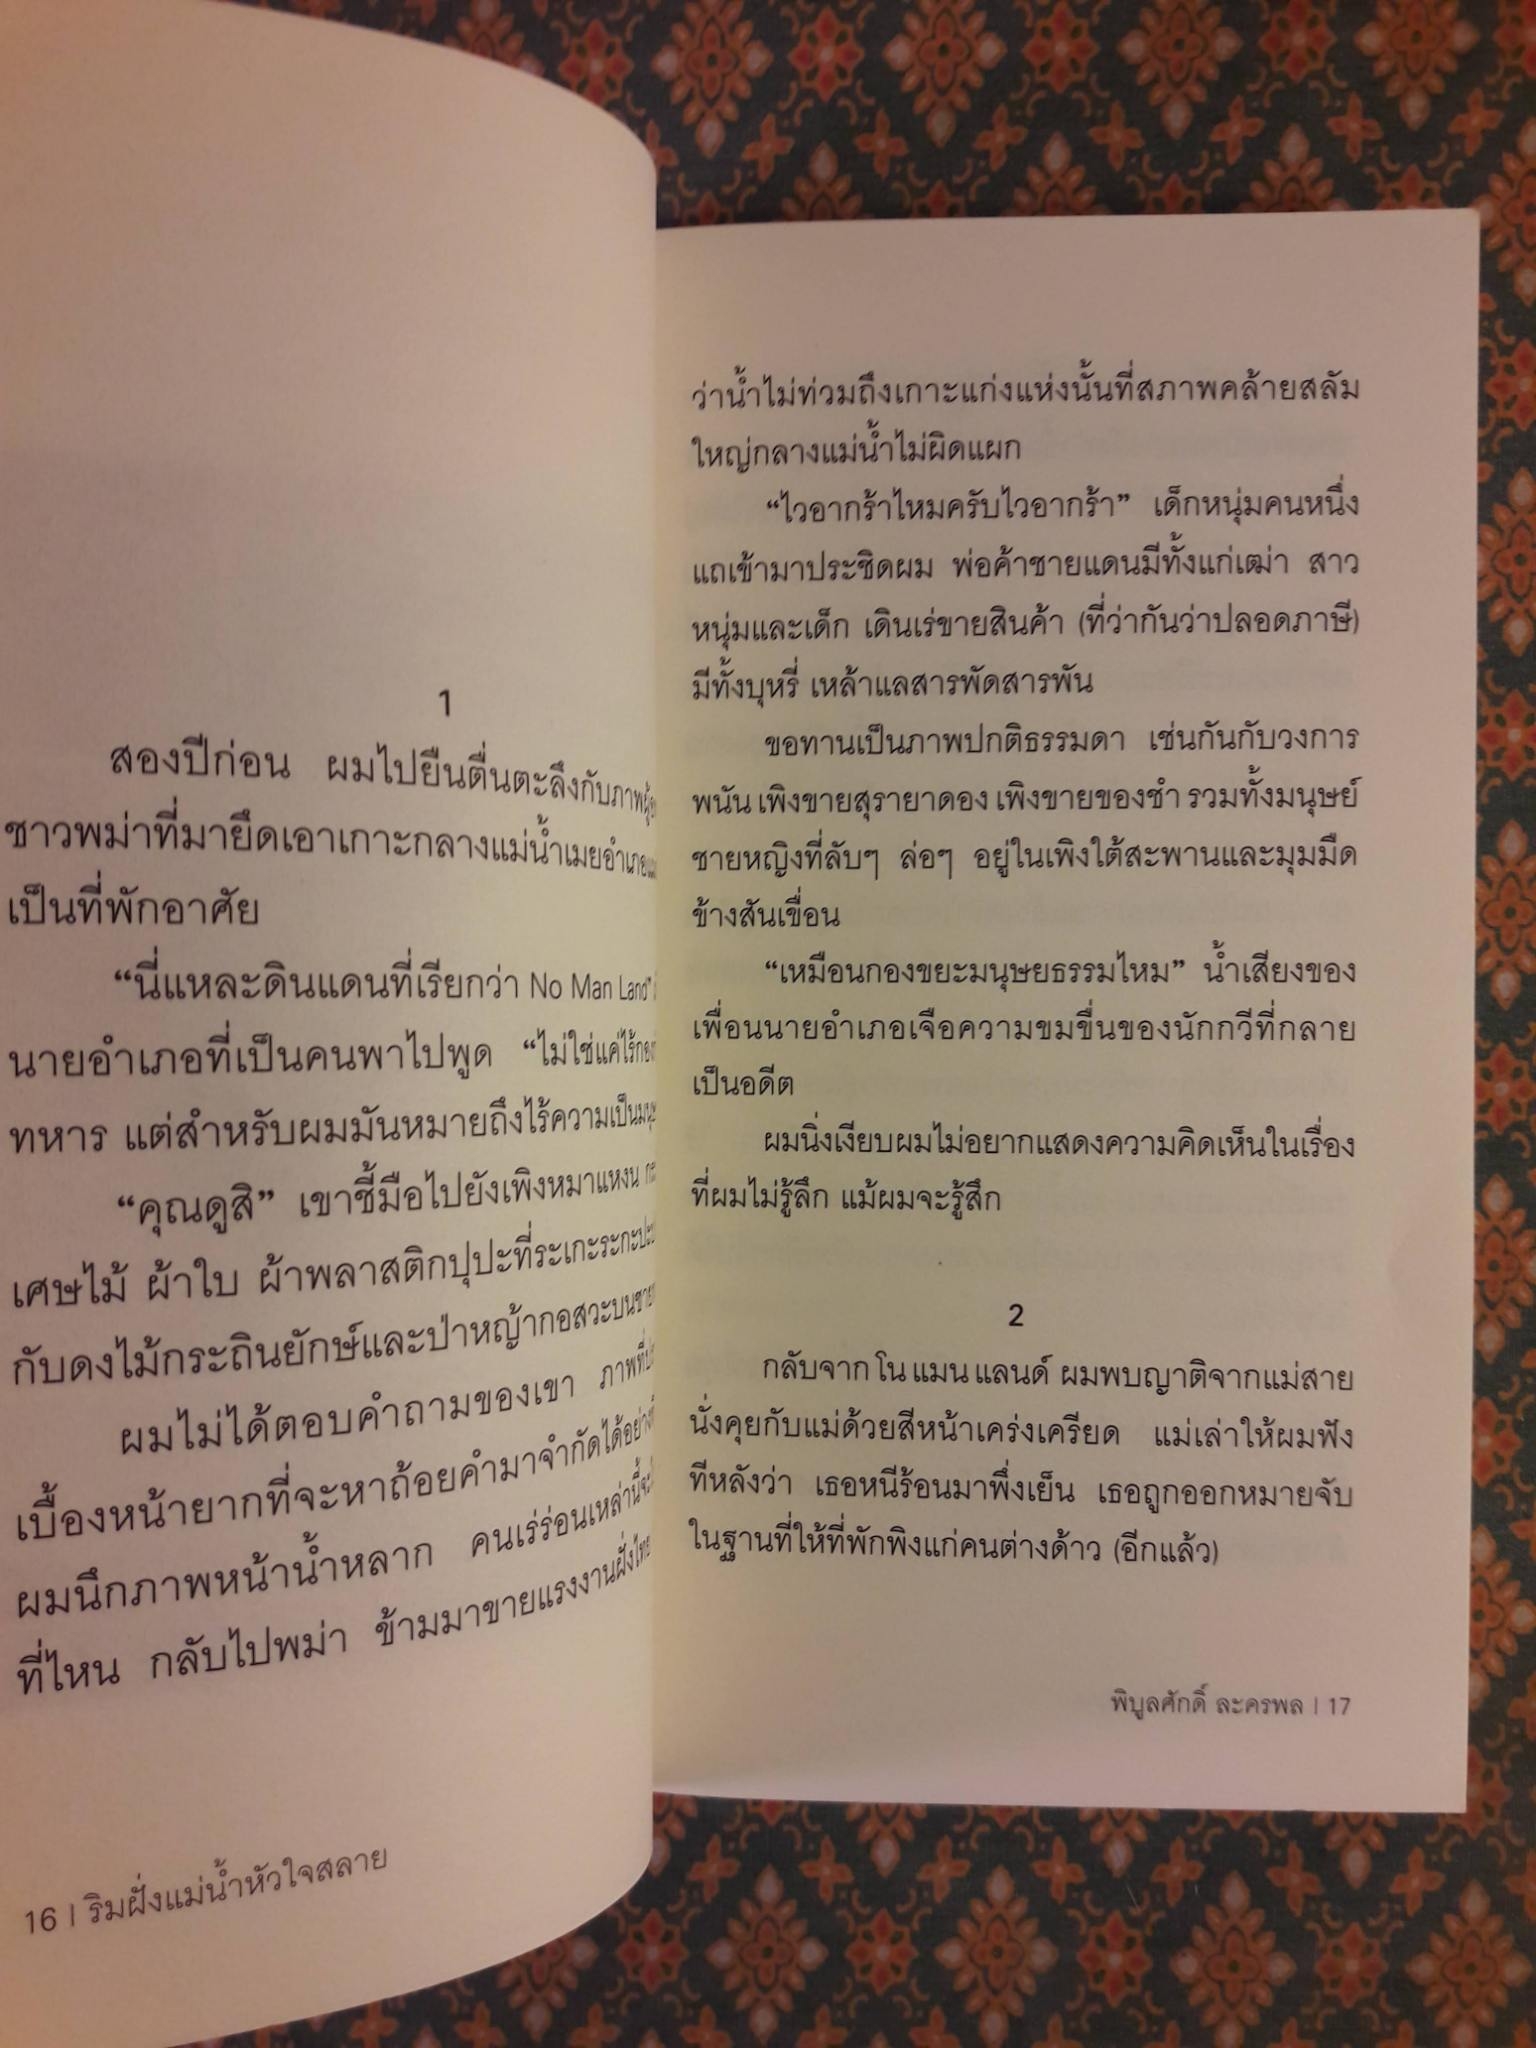 1
สองปีก่อน ผมไปยืนตื่นตะลึงกับภาพ
ชาวพม่าที่มายึดเอาเกาะกลางแม่น้ำเมยอำเภอ
เป็นที่พักอาศัย
“นี่แหละดินแดนที่เรียกว่า No Man Land”
นายอำเภอที่เป็นคนพาไปพูด “ไม่ใช่แค่ไร้กอง
ทหาร แต่สำหรับผมมันหมายถึงไร้ความเป็น
“คุณดูสิ” เขาชี้มือไปยังเพิงหมาแหงน
เศษไม้ ผ้าใบ ผ้าพลาสติกปุปะที่ระเกะระกะ
กับดงไม้กระถินยักษ์และป่าหญ้ากอสวะบน
ผมไม่ได้ตอบคำถามของเขา ภาพที่
เบื้องหน้ายากที่จะหาถ้อยคำมาจำกัดได้
ผมนึกภาพหน้าน้ำหลาก คนเร่ร่อนเหล่านี้จะ
ที่ไหน กลับไปพม่า ข้ามมาขายแรงงานฝั่งไทย
16 | ริมฝั่งแม่น้ำหัวใจสลาย
ว่าน้ำไม่ท่วมถึงเกาะแก่งแห่งนั้นที่สภาพคล้ายสลัม
ใหญ่กลางแม่น้ำไม่ผิดแผก
“ไวอากร้าไหมครับไวอากร้า” เด็กหนุ่มคนหนึ่ง
แถเข้ามาประชิดผม พ่อค้าชายแดนมีทั้งแก่เฒ่า สาว
หนุ่มและเด็ก เดินเร่ขายสินค้า (ที่ว่ากันว่าปลอดภาษี)
มีทั้งบุหรี่ เหล้าแลสารพัดสารพัน
ขอทานเป็นภาพปกติธรรมดา เช่นกันกับวงการ
พนัน เพิงขายสุรายาดอง เพิงขายของชำ รวมทั้งมนุษย์
ชายหญิงที่ลับๆ ล่อๆ อยู่ในเพิงใต้สะพานและมุมมืด
ข้างสันเขื่อน
“เหมือนกองขยะมนุษยธรรมไหม” น้ำเสียงของ
เพื่อนนายอำเภอเจือความขมขื่นของนักกวีที่กลาย
เป็นอดีต
ผมนิ่งเงียบผมไม่อยากแสดงความคิดเห็นในเรื่อง
ที่ผมไม่รู้ลึก แม้ผมจะรู้สึก
2
กลับจาก โน แมน แลนด์ ผมพบญาติจากแม่สาย
นั่งคุยกับแม่ด้วยสีหน้าเคร่งเครียด แม่เล่าให้ผมฟัง
ทีหลังว่า เธอหนีร้อนมาพึ่งเย็น เธอถูกออกหมายจับ
ในฐานที่ให้ที่พักพิงแก่คนต่างด้าว (อีกแล้ว)
พิบูลศักดิ์ ละครพล | 17